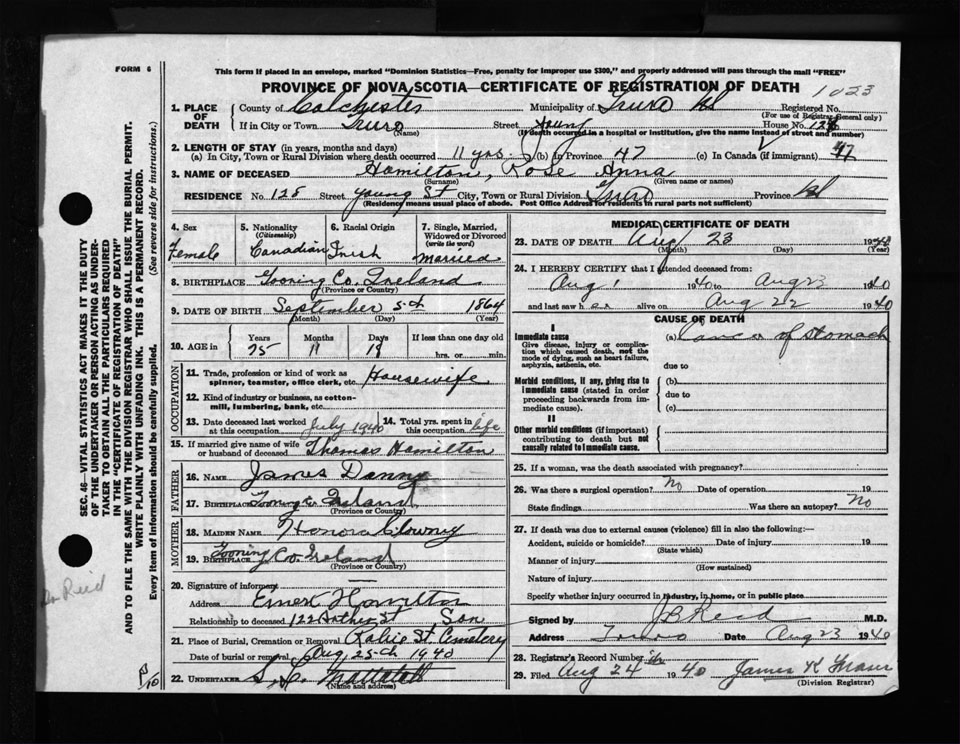 FORM 6
This form if placed in an envelope, marked "Dominion Statistics—Free, penalty for improper use $300," and properly addressed will pass through the mail "FREE"
PROVINCE OF NOVA SCOTIA—CERTIFICATE OF REGISTRATION OF DEATH
1023
1. PLACE OF DEATH
County of Colchester Municipality of Truro Registered No.
(For use of Registrar General only)
If in City or Town Truro Street Young House No. 128
(Name) (If death occurred in a hospital or institution, give the name instead of street and number)
2. LENGTH OF STAY (in years, months and days)
(a) In City, Town or Rural Division where death occurred 11 yrs. (b) In Province 47 (c) In Canada (if immigrant) 47
3. NAME OF DECEASED Hamilton, Rose Anna
(Surname) (Given name or names)
RESIDENCE No. 128 Street Young St City, Town or Rural Division Truro Province
(Residence means usual place of abode. Post Office Address for residents in rural parts not sufficient)
4. Sex Female
5. Nationality (Citizenship) Canadian
6. Racial Origin Irish
7. Single, Married, Widowed or Divorced (write the word) Married
8. BIRTHPLACE Co. Ireland
(Province or Country)
9. DATE OF BIRTH September 5th 1864
(Month) (Day) (Year)
10. AGE in Years 75 Months 11 Days 18 If less than one day old
hrs. or min.
OCCUPATION
11. Trade, profession or kind of work as spinner, teamster, office clerk, etc. Housewife
12. Kind of industry or business, as cotton-mill, lumbering, bank, etc.
13. Date deceased last worked at this occupation July 1940
14. Total yrs. spent in this occupation life
15. If married give name of wife or husband of deceased Thomas Hamilton
FATHER
16. NAME James
17. BIRTHPLACE Co. Ireland
(Province or Country)
MOTHER
18. MAIDEN NAME Honora
19. BIRTHPLACE Co. Ireland
(Province or Country)
20. Signature of informant Ernest Hamilton
Address 122 St
Relationship to deceased Son
21. Place of Burial, Cremation or Removal St. Cemetery
Date of burial or removal Aug 25th 1940
22. UNDERTAKER Mattatall
(Name and address)
MEDICAL CERTIFICATE OF DEATH
23. DATE OF DEATH Aug 23 1940
(Month) (Day) (Year)
24. I HEREBY CERTIFY that I attended deceased from:
Aug 1 1940 to Aug 23 1940
and last saw her alive on Aug 22 1940
CAUSE OF DEATH
I
Immediate cause (a) Cancer of Stomach
Give disease, injury or complication which caused death, not the mode of dying, such as heart failure, asphyxia, asthenia, etc.
due to
Morbid conditions, if any, giving rise to immediate cause (stated in order proceeding backwards from immediate cause).
(b)
due to
(c)
II
Other morbid conditions (if important) contributing to death but not causally related to immediate cause.
25. If a woman, was the death associated with pregnancy?
26. Was there a surgical operation? No Date of operation 19
State findings Was there an autopsy? No
27. If death was due to external causes (violence) fill in also the following:—
Accident, suicide or homicide? Date of injury 19
(State which)
Manner of injury
(How sustained)
Nature of injury
Specify whether injury occurred in industry, in home, or in public place
Signed by J B Reid M.D.
Address Truro Date Aug 23 1940
28. Registrar's Record Number
29. Filed Aug 24 1940 James K Fraser
(Division Registrar)
SEC. 46—VITAL STATISTICS ACT MAKES IT THE DUTY
OF THE UNDERTAKER OR PERSON ACTING AS UNDERTAKER TO OBTAIN ALL THE PARTICULARS REQUIRED
IN THE "CERTIFICATE OF REGISTRATION OF DEATH"
AND TO FILE THE SAME WITH THE DIVISION REGISTRAR WHO SHALL ISSUE THE BURIAL PERMIT.
WRITE PLAINLY WITH UNFADING INK. THIS IS A PERMANENT RECORD.
Every item of information should be carefully supplied. (See reverse side for instructions.)
Dr Reid